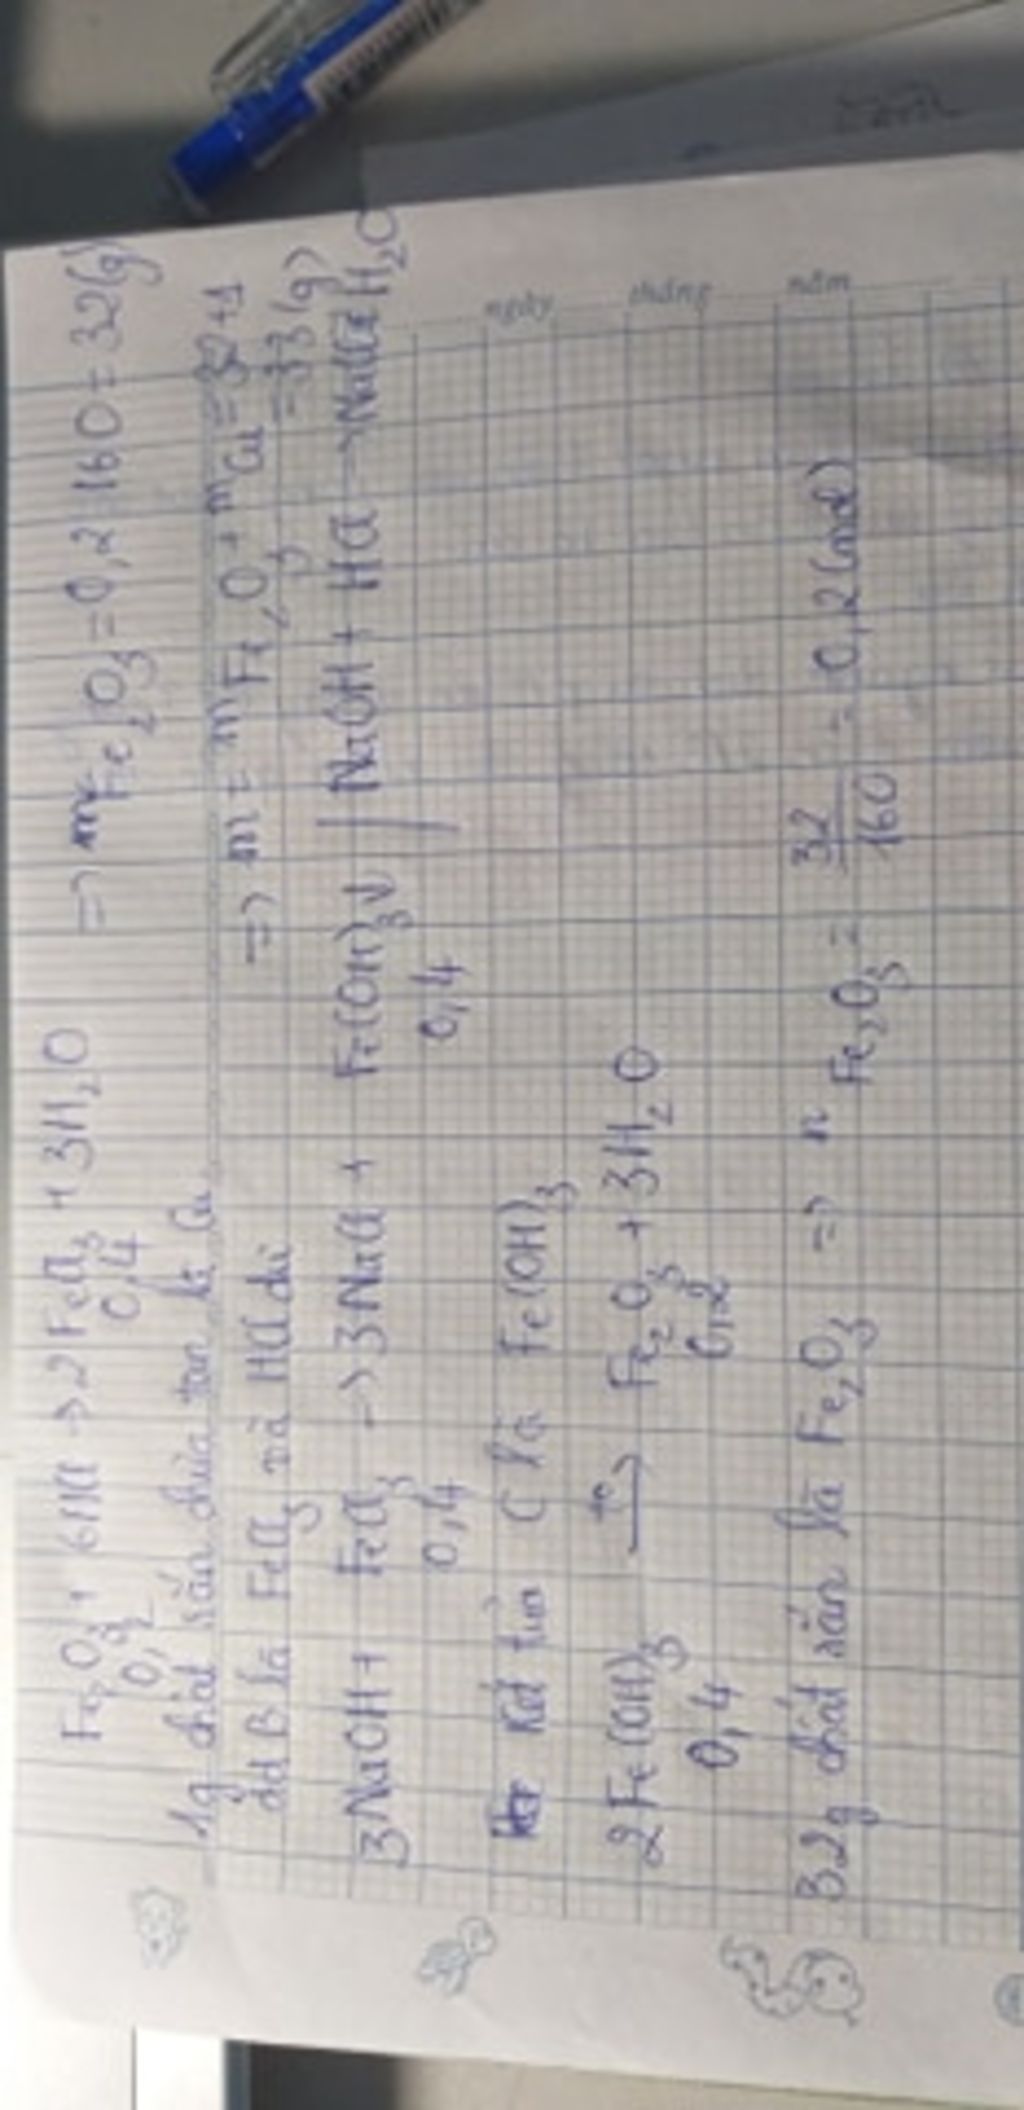 Fe₂O₃ + 6HCl → 2FeCl₃ + 3H₂O => m Fe₂O₃ = 0,2 . 160 = 32(g)
0,2 0,4
1g chất rắn chưa tan là Cu => m = m Fe₂O₃ + m Cu = 32 + 1
dd B là FeCl₃ và HCl dư = 33(g)
3NaOH + FeCl₃ => 3NaCl + Fe(OH)₃↓ | NaOH + HCl → NaCl H₂O
0,4 0,4
Kết tủa C là Fe(OH)₃
2Fe(OH)₃ t° → Fe₂O₃ + 3H₂O
0,4 0,2
32g chất rắn là Fe₂O₃ => n Fe₂O₃ = 32/160 = 0,2(mol)
ngày
tháng
năm